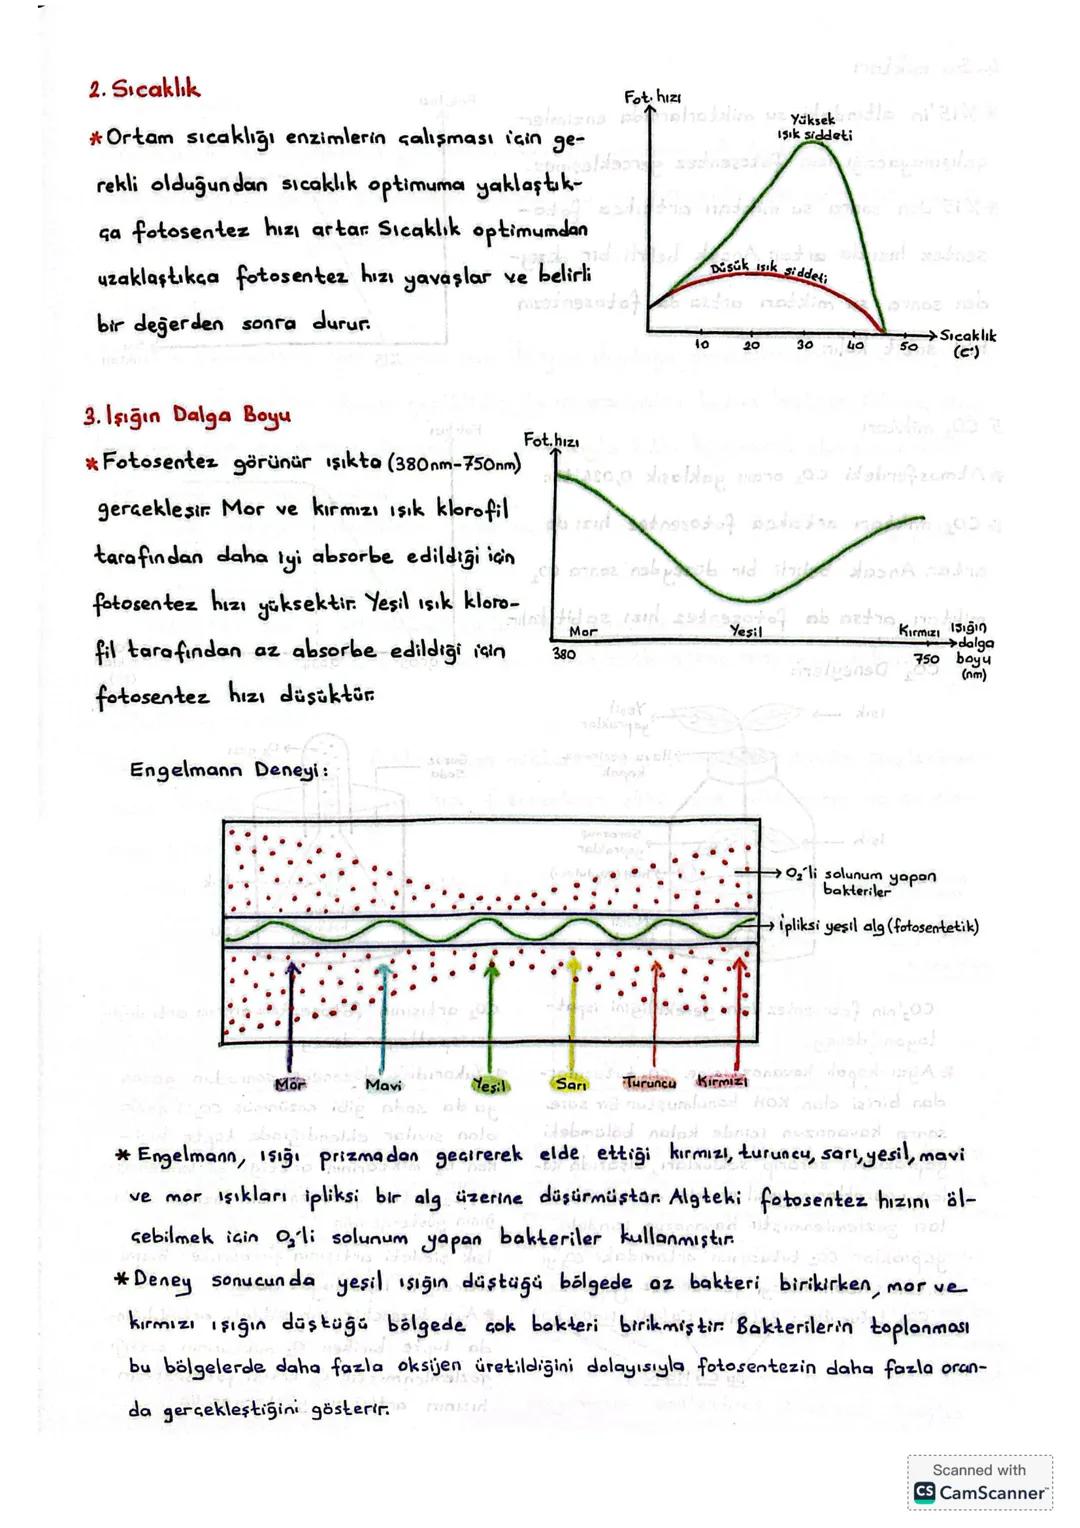 2. Sıcaklık
* Ortam sıcaklığı enzimlerin çalışması için ge-
rekli olduğundan sıcaklık optimuma yaklaştık-
ça fotosentez hızı artar. Sıcaklık optimumdan
uzaklaştıkça fotosentez hızı yavaşlar ve belirli
bir değerden sonra durur.
Fot. hızı
Yüksek
ışık şiddeti
Düşük ışık şiddeti
10 20 30 40 50
Sıcaklık
(C°)
3. Işığın Dalga Boyu
* Fotosentez görünür ışıkta (380nm-750nm)
gerçekleşir. Mor ve kırmızı ışık klorofil
tarafından daha iyi absorbe edildiği için
fotosentez hızı yüksektir. Yeşil ışık kloro-
fil tarafından az absorbe edildiği için
fotosentez hızı düşüktür.
Fot. hızı
Mor Yeşil Kırmızı
380 750
Işığın
dalga
boyu
(nm)
Engelmann Deneyi:
O₂'li solunum yapan
bakteriler
ipliksi yeşil alg (fotosentetik)
Mor Mavi Yeşil Sarı Turuncu Kırmızı
* Engelmann, ışığı prizmadan geçirerek elde ettiği kırmızı, turuncu, sarı, yeşil, mavi
ve mor ışıkları ipliksi bir alg üzerine düşürmüştür. Algteki fotosentez hızını öl-
çebilmek için O₂'li solunum yapan bakteriler kullanmıştır.
* Deney sonucunda yeşil ışığın düştüğü bölgede az bakteri birikirken, mor ve
kırmızı ışığın düştüğü bölgede çok bakteri birikmiştir. Bakterilerin toplanması
bu bölgelerde daha fazla oksijen üretildiğini dolayısıyla fotosentezin daha fazla oran-
da gerçekleştiğini gösterir.
Scanned with
CS CamScanner